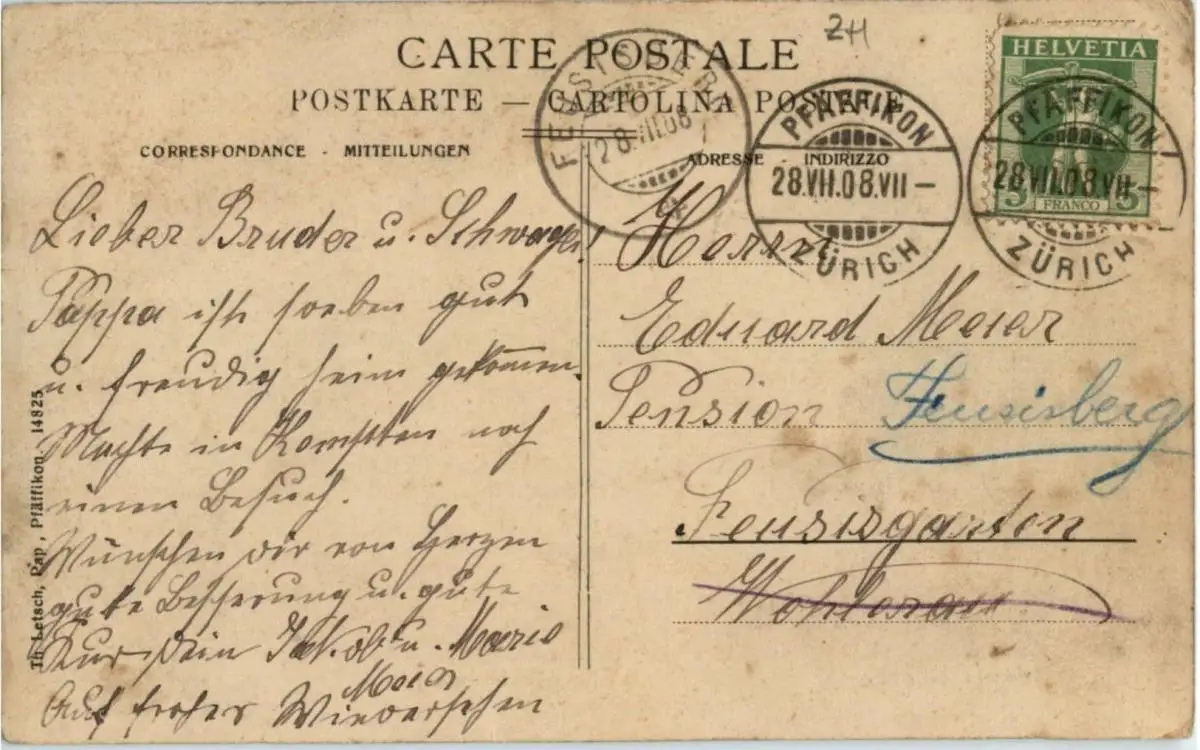 ZH
CARTE POSTALE
POSTKARTE — CARTOLINA POSTALE
CORRESPONDANCE - MITTEILUNGEN
ADRESSE - INDIRIZZO
HELVETIA
5 FRANCO 5
PFÄFFIKON
28.VII.08.VII –
ZÜRICH
PFÄFFIKON
28.VII.08.VII –
ZÜRICH
28.VII.08
Lieber Bruder u. Schwager!
Pappa ist soeben gut
u. freudig heim gekommen.
Machte in Kempten noch
einen Besuch.
Wünschen dir von Herzen
gute Besserung u. gute
Kur dein Jakob u. Marie
Meier
Auf frohes Wiedersehen
Herrn
Eduard Meier
Pension Feusisberg
Feusisgarten
Wohlerau
Th. Letsch, Pap., Pfäffikon. 14825